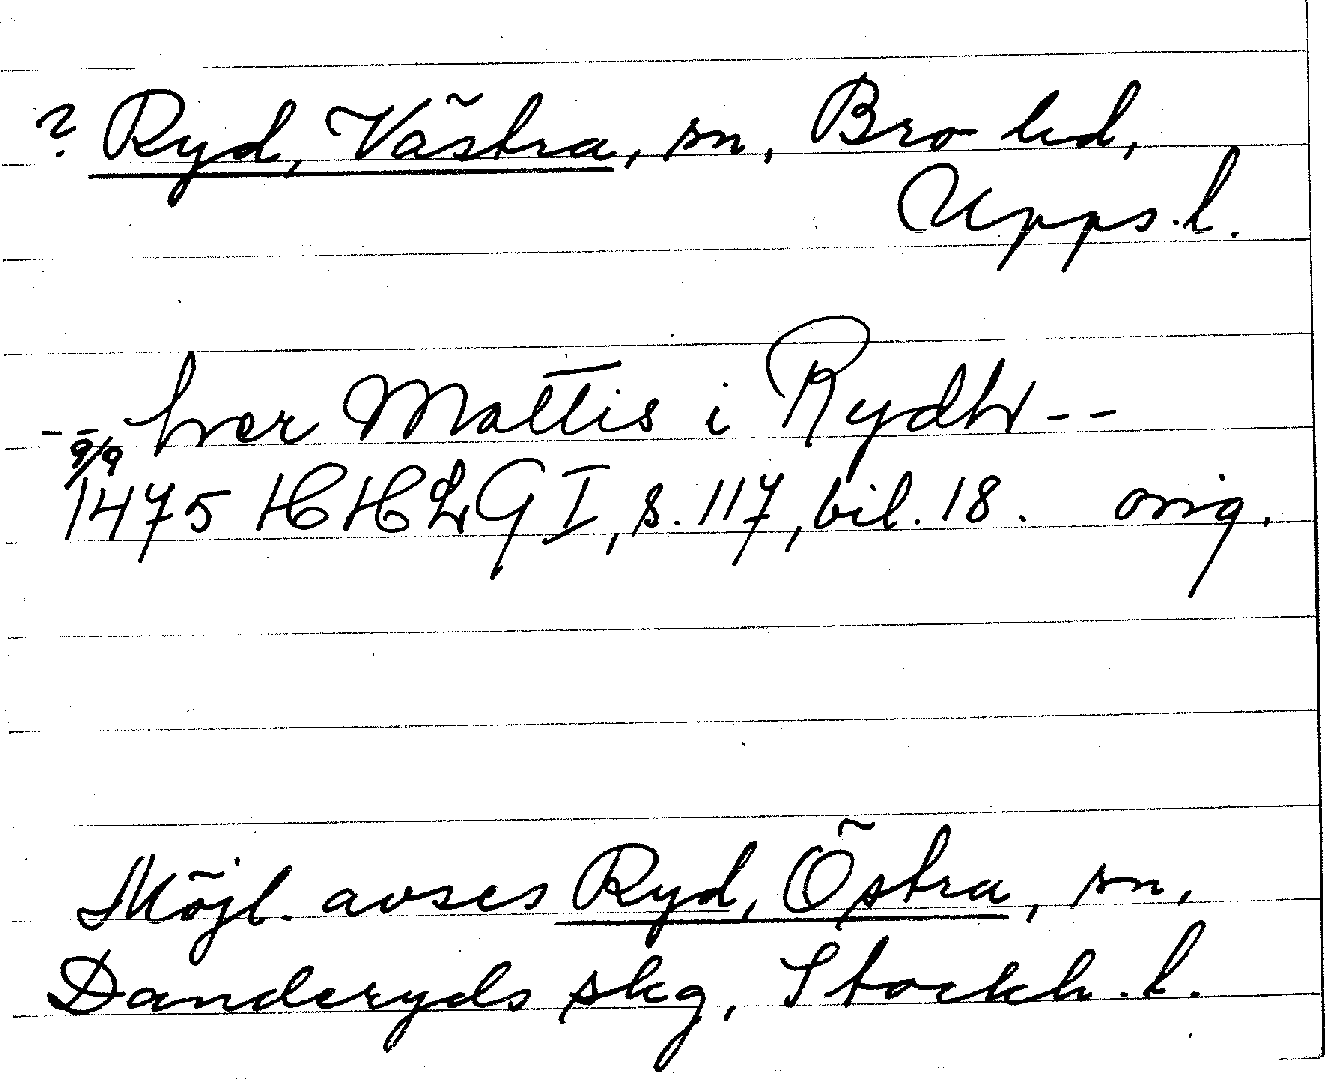 ? Ryd, Västra, sn, Bro hd,
Upps. l.
-- her Mattis i Rydh --
9/9
1475 HHLG I, s. 117, bil. 18. orig.
Möjl. avses Ryd, Östra, sn,
Danderyds skg, Stockh. l.